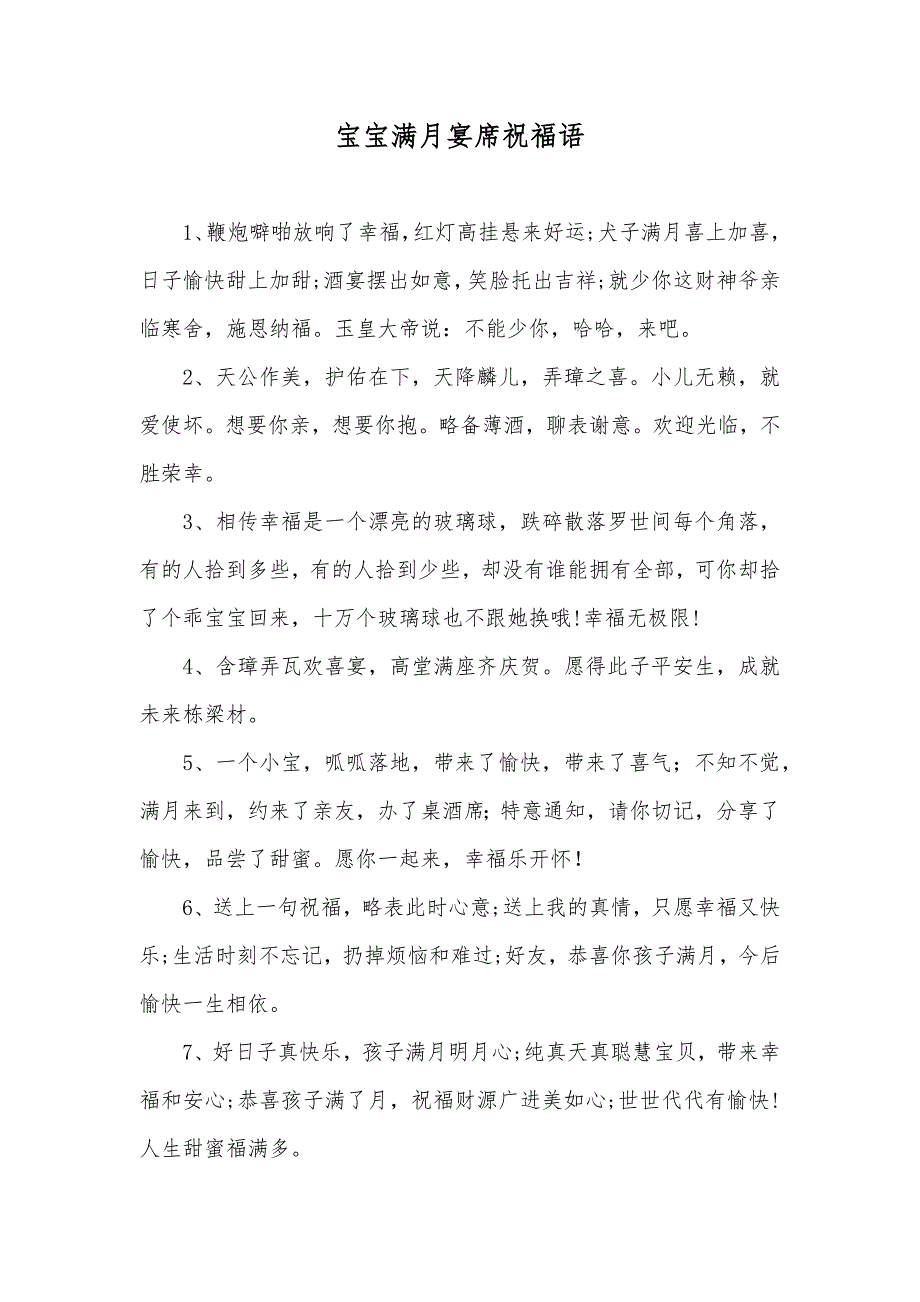 宝宝满月宴席祝福语
1、鞭炮噼啪放响了幸福,红灯高挂悬来好运;犬子满月喜上加喜,
日子愉快甜上加甜;酒宴摆出如意,笑脸托出吉祥;就少你这财神爷亲
临寒舍，施恩纳福。玉皇大帝说：不能少你，哈哈，来吧。
2、天公作美，护佑在下，天降麟儿，弄璋之喜。小儿无赖，就
爱使坏。想要你亲，想要你抱。略备薄酒，聊表谢意。欢迎光临，不
胜荣幸。
3、相传幸福是一个漂亮的玻璃球，跌碎散落罗世间每个角落，
有的人拾到多些，有的人拾到少些，却没有谁能拥有全部，可你却拾
了个乖宝宝回来，十万个玻璃球也不跟她换哦!幸福无极限!
4、含璋弄瓦欢喜宴，高堂满座齐庆贺。愿得此子平安生，成就
未来栋梁材。
5、一个小宝，呱呱落地，带来了愉快，带来了喜气；不知不觉，
满月来到，约来了亲友，办了桌酒席；特意通知，请你切记，分享了
愉快，品尝了甜蜜。愿你一起来，幸福乐开怀！
6、送上一句祝福，略表此时心意;送上我的真情，只愿幸福又快
乐;生活时刻不忘记，扔掉烦恼和难过;好友，恭喜你孩子满月，今后
愉快一生相依。
7、好日子真快乐，孩子满月明月心;纯真天真聪慧宝贝，带来幸
福和安心;恭喜孩子满了月，祝福财源广进美如心;世世代代有愉快!
人生甜蜜福满多。